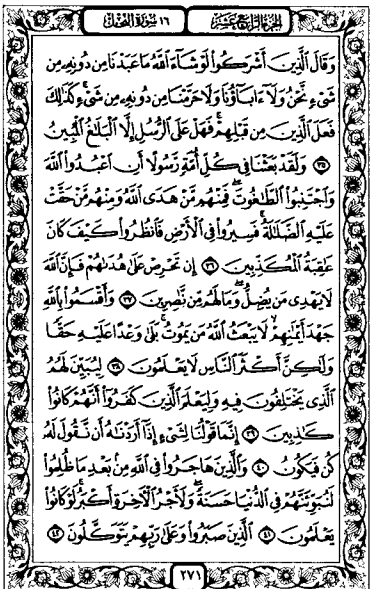 الجزء الرابع عشر ١٦ سورة النحل
وَقَالَ ٱلَّذِينَ أَشۡرَكُوا۟ لَوۡ شَآءَ ٱللَّهُ مَا عَبَدۡنَا مِن دُونِهِۦ مِن
شَىۡءٍ نَّحۡنُ وَلَآ ءَابَآؤُنَا وَلَا حَرَّمۡنَا مِن دُونِهِۦ مِن شَىۡءٍۚ كَذَٰلِكَ
فَعَلَ ٱلَّذِينَ مِن قَبۡلِهِمۡۚ فَهَلۡ عَلَى ٱلرُّسُلِ إِلَّا ٱلۡبَلَٰغُ ٱلۡمُبِينُ
٣٥ وَلَقَدۡ بَعَثۡنَا فِى كُلِّ أُمَّةٍ رَّسُولًا أَنِ ٱعۡبُدُوا۟ ٱللَّهَ
وَٱجۡتَنِبُوا۟ ٱلطَّٰغُوتَۖ فَمِنۡهُم مَّنۡ هَدَى ٱللَّهُ وَمِنۡهُم مَّنۡ حَقَّتۡ
عَلَيۡهِ ٱلضَّلَٰلَةُۚ فَسِيرُوا۟ فِى ٱلۡأَرۡضِ فَٱنظُرُوا۟ كَيۡفَ كَانَ
عَٰقِبَةُ ٱلۡمُكَذِّبِينَ ٣٦ إِن تَحۡرِصۡ عَلَىٰ هُدَىٰهُمۡ فَإِنَّ ٱللَّهَ
لَا يَهۡدِى مَن يُضِلُّۖ وَمَا لَهُم مِّن نَّٰصِرِينَ ٣٧ وَأَقۡسَمُوا۟ بِٱللَّهِ
جَهۡدَ أَيۡمَٰنِهِمۡۙ لَا يَبۡعَثُ ٱللَّهُ مَن يَمُوتُۚ بَلَىٰ وَعۡدًا عَلَيۡهِ حَقًّا
وَلَٰكِنَّ أَكۡثَرَ ٱلنَّاسِ لَا يَعۡلَمُونَ ٣٨ لِيُبَيِّنَ لَهُمُ
ٱلَّذِى يَخۡتَلِفُونَ فِيهِ وَلِيَعۡلَمَ ٱلَّذِينَ كَفَرُوٓا۟ أَنَّهُمۡ كَانُوا۟
كَٰذِبِينَ ٣٩ إِنَّمَا قَوۡلُنَا لِشَىۡءٍ إِذَآ أَرَدۡنَٰهُ أَن نَّقُولَ لَهُۥ
كُن فَيَكُونُ ٤٠ وَٱلَّذِينَ هَاجَرُوا۟ فِى ٱللَّهِ مِنۢ بَعۡدِ مَا ظُلِمُوا۟
لَنُبَوِّئَنَّهُمۡ فِى ٱلدُّنۡيَا حَسَنَةًۖ وَلَأَجۡرُ ٱلۡأٓخِرَةِ أَكۡبَرُۚ لَوۡ كَانُوا۟
يَعۡلَمُونَ ٤١ ٱلَّذِينَ صَبَرُوا۟ وَعَلَىٰ رَبِّهِمۡ يَتَوَكَّلُونَ ٤٢
٢٧١